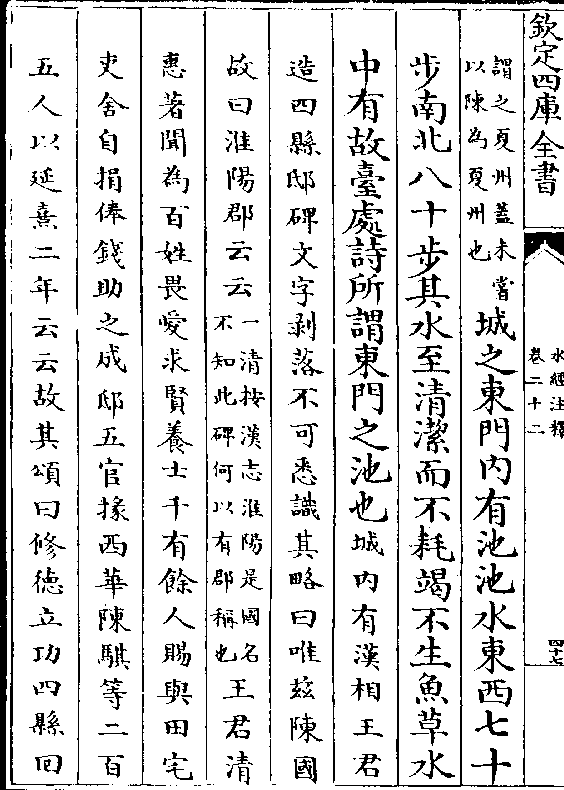 欽定四庫全書
水經注釋
卷二十二
四十七
謂之夏州蓋未嘗
以陳為夏州也
城之東門內有池池水東西七十
步南北八十步其水至清潔而不耗竭不生魚草水
中有故臺處詩所謂東門之池也城內有漢相王君
造四縣邸碑文字剥落不可悉識其略曰唯茲陳國
故曰淮陽郡云云
一清按漢志淮陽是國名
不知此碑何以有郡稱也
王君清
惠著聞為百姓畏愛求賢養士千有餘人賜與田宅
吏舍自捐俸錢助之成邸五官掾西華陳騏等二百
五人以延熹二年云云故其頌曰修德立功四縣回